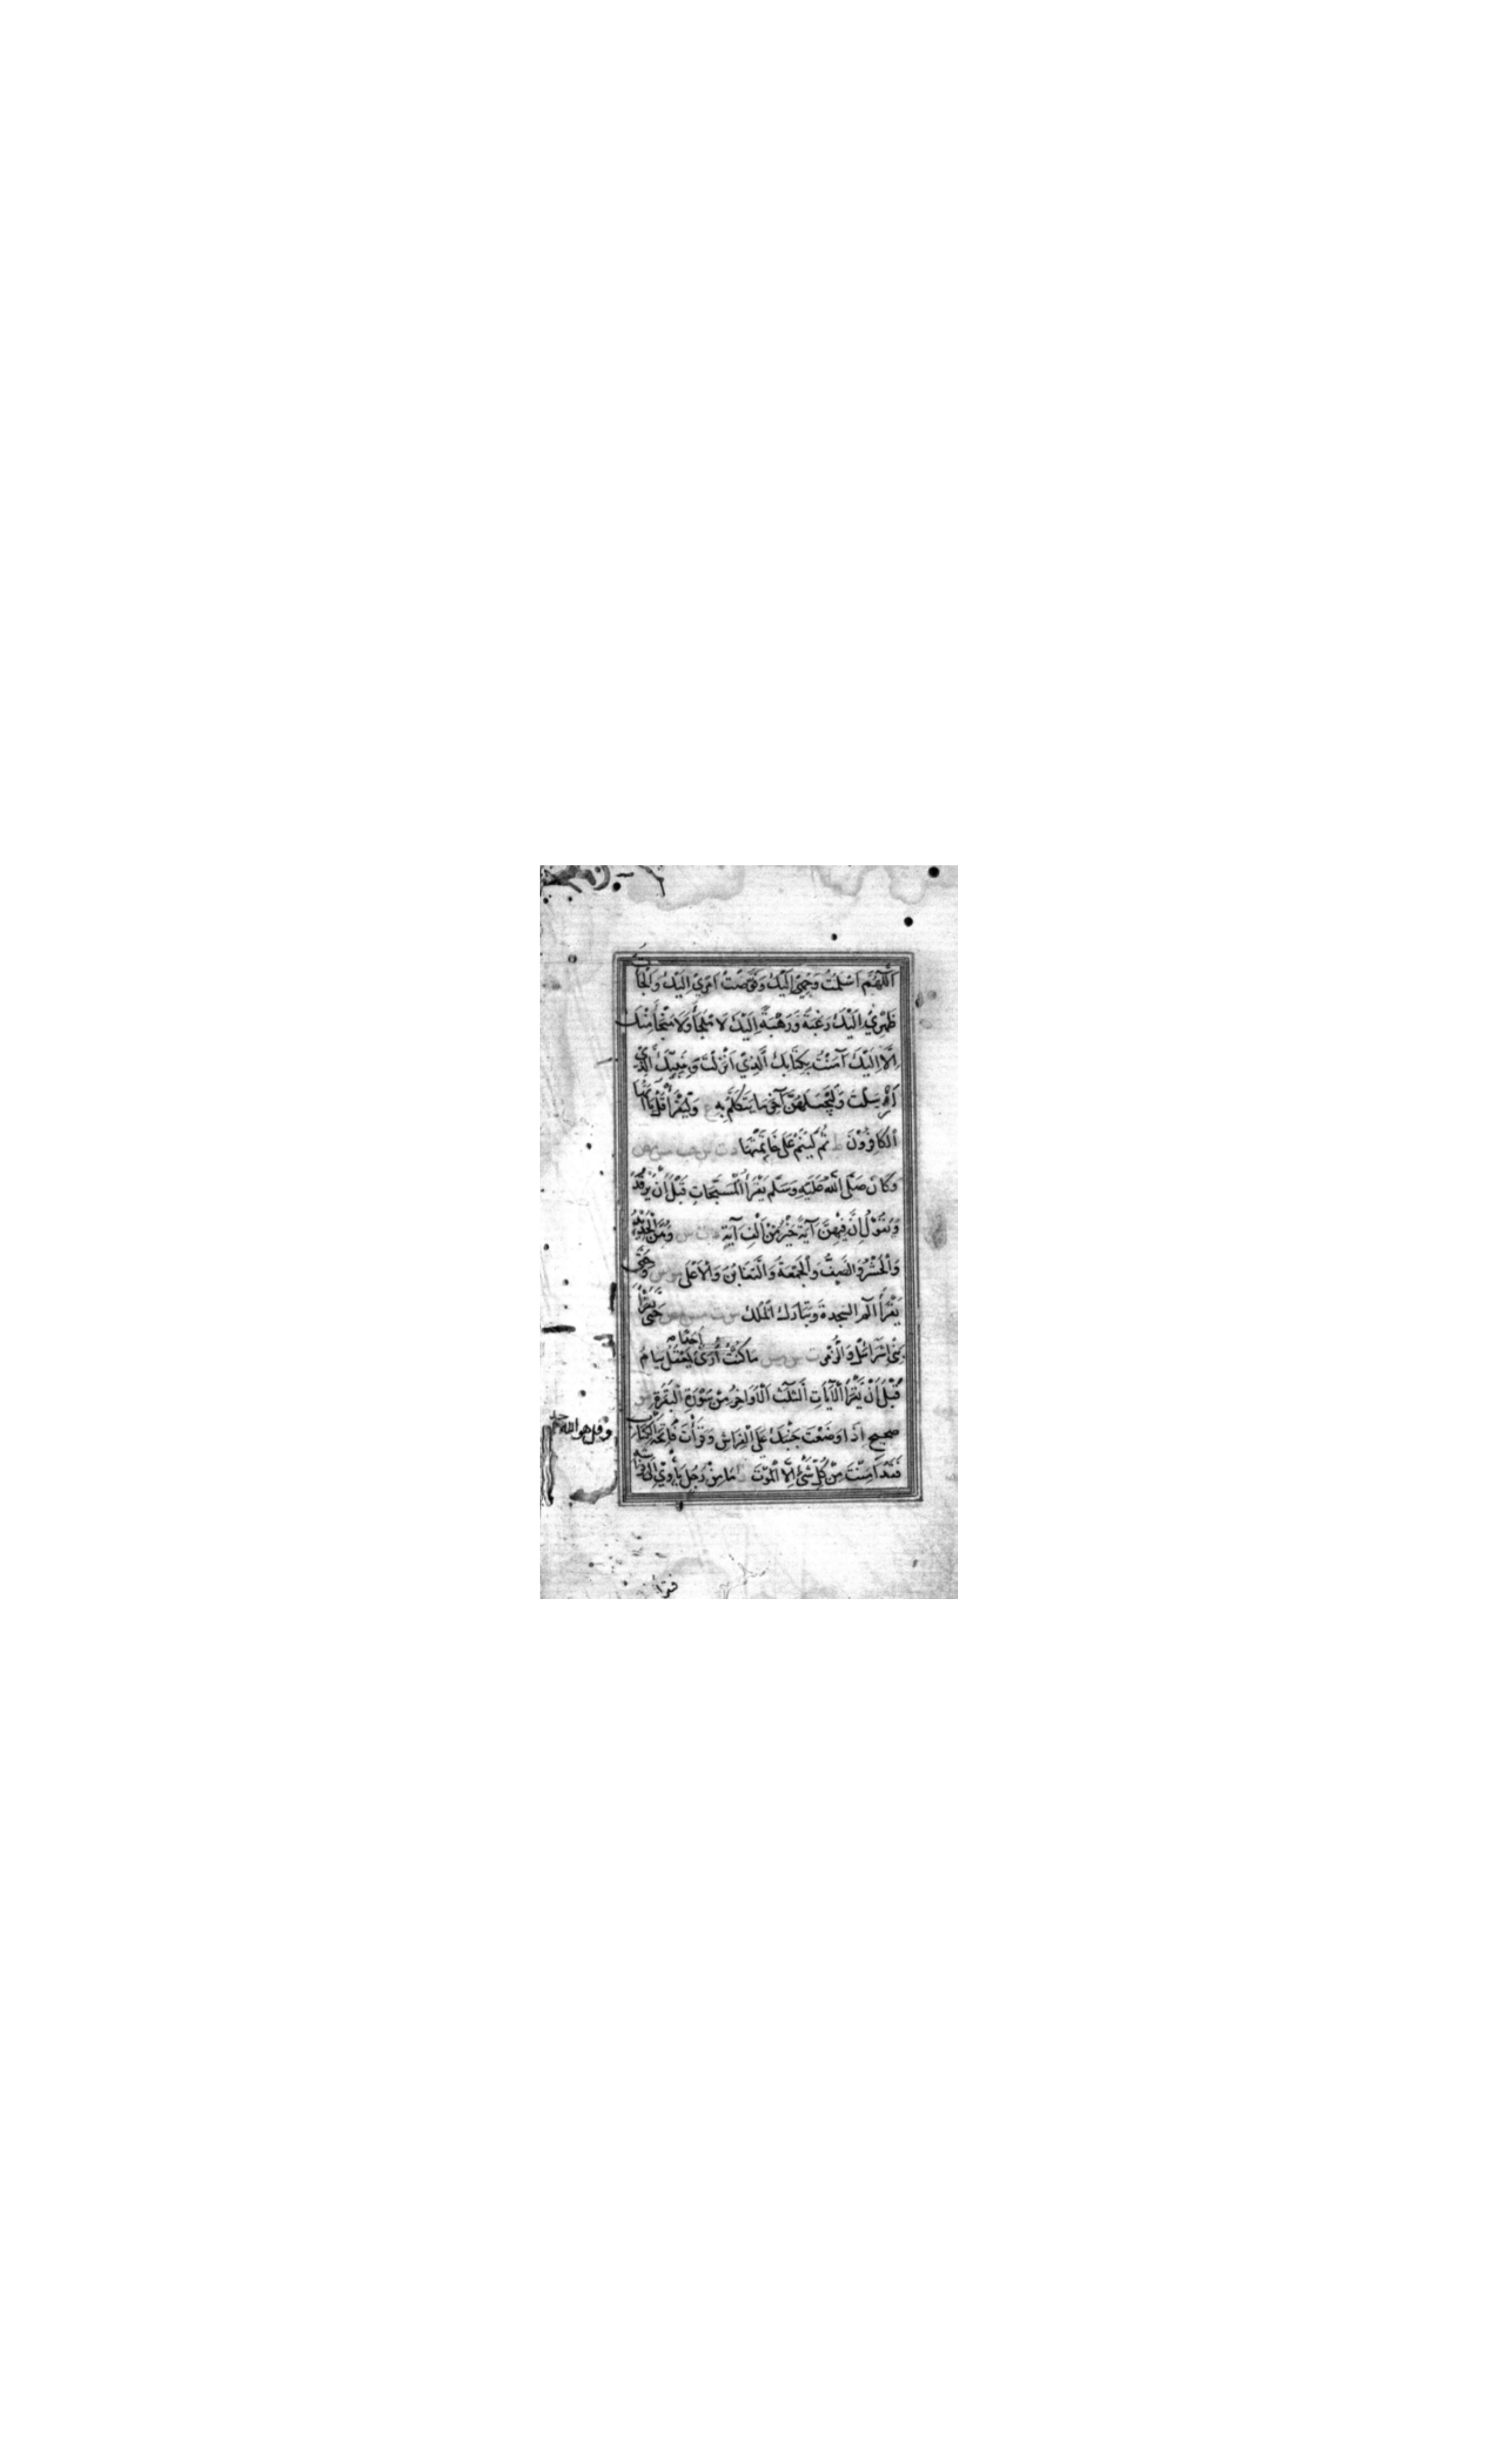 اَللّٰهُمَّ اَسْلَمْتُ وَجْهِيْ اِلَيْكَ وَفَوَّضْتُ اَمْرِيْ اِلَيْكَ وَاَلْجَأْتُ
ظَهْرِيْ اِلَيْكَ رَغْبَةً وَرَهْبَةً اِلَيْكَ لَا مَلْجَأَ وَلَا مَنْجَأَ مِنْكَ
اِلَّا اِلَيْكَ آمَنْتُ بِكِتَابِكَ الَّذِيْ اَنْزَلْتَ وَنَبِيِّكَ الَّذِيْ
اَرْسَلْتَ وَلْيَجْعَلْهُنَّ آخِرَ مَا يَتَكَلَّمُ بِهِ ع وَلْيَقْرَأْ قُلْ يَا اَيُّهَا
الْكَافِرُوْنَ ط ثُمَّ لْيَنَمْ عَلَى خَاتِمَتِهَا د ت س حب مس مص
وَكَانَ صَلَّى اللّٰهُ عَلَيْهِ وَسَلَّمَ يَقْرَأُ الْمُسَبِّحَاتِ قَبْلَ اَنْ يَرْقُدَ
وَيَقُوْلُ اِنَّ فِيْهِنَّ آيَةً خَيْرٌ مِنْ اَلْفِ آيَةٍ د ت س وَهُنَّ الْحَدِيْدُ
وَالْحَشْرُ وَالصَّفُّ وَالْجُمْعَةُ وَالتَّغَابُنُ وَالْاَعْلَى مو س وَحَتَّى
يَقْرَأَ الٓمٓ السَّجْدَةَ وَتَبَارَكَ الْمُلْكَ س ت مص مس حَتَّى يَقْرَأَ
بَنِيْ اِسْرَائِلَ وَالزُّمَرَ ت س مس مَا كُنْتُ اُرَىٰ اَحَدًا يَعْقِلُ يَنَامُ
قَبْلَ اَنْ يَقْرَأَ الْآيَاتِ الثَّلٰثَ الْاَوَاخِرَ مِنْ سُوْرَةِ الْبَقَرَةِ مو
صحيح اِذَا وَضَعْتَ جَنْبَكَ عَلَى الْفِرَاشِ وَقَرَأْتَ فَاتِحَةَ الْكِتَابِ
وقل هو الله احد
فَقَدْ اَمِنْتَ مِنْ كُلِّ شَيْءٍ اِلَّا الْمَوْتَ ر مَا مِنْ رَجُلٍ يَأْوِيْ اِلَى فِرَاشِهِ
فيقرأ